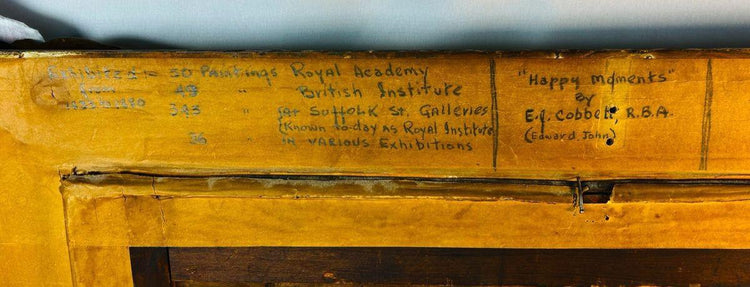 EXHIBITED :- 50 Paintings Royal Academy
from 49 " British Institute
1833 to 1880 383 " (At SuffolK St. Galleries
(Known to-day as Royal Institute
36 " in VARIOUS Exhibitions
"Happy Moments"
By
E.J. Cobbett, R.B.A.
(Edward John)